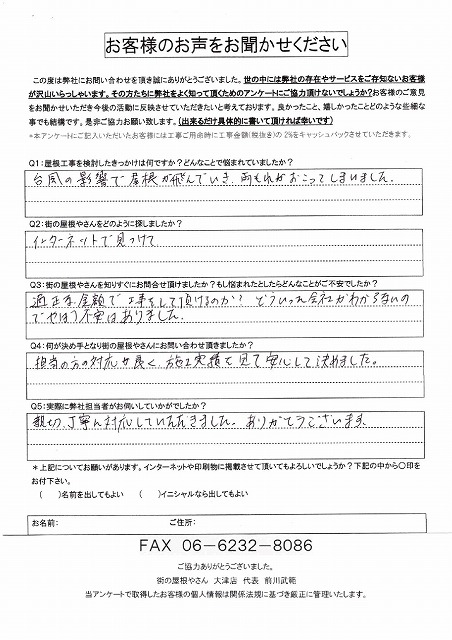 お客様のお声をお聞かせください
この度は弊社にお問い合わせを頂き誠にありがとうございました。世の中には弊社の存在やサービスをご存知ないお客様
が沢山いらっしゃいます。その方たちに弊社をよく知って頂くためのアンケートにご協力頂けないでしょうか?お客様のご意見
をお聞かせいただき今後の活動に反映させていただきたいと考えております。良かったこと、嬉しかったことどのような些細な
事でも結構です。是非ご協力お願い致します。(出来るだけ具体的に書いて頂ければ幸いです)
*本アンケートにご記入いただいたお客様には工事ご用命時に工事金額(税抜き)の 2%をキャッシュバックさせていただきます。
Q1:屋根工事を検討したきっかけは何ですか?どんなことで悩まれていましたか?
台風の影響で屋根が飛んでいき、雨もれがおこってしまいました。
Q2:街の屋根やさんをどのように探しましたか?
インターネットで見つけて
Q3:街の屋根やさんを知りすぐにお問合せ頂けましたか?もし悩まれたとしたらどんなことがご不安でしたか?
適正な金額で工事をして頂けるのか? どういった会社かわからないの
でやはり不安はありました。
Q4:何が決め手となり街の屋根やさんにお問い合わせ頂きましたか?
担当の方の対応も良く、施工実績を見て安心して決めました。
Q5:実際に弊社担当者がお伺いしていかがでしたか?
親切、丁寧に対応していただきました。ありがとうございます。
*上記についてお願いがあります。インターネットや印刷物に掲載させて頂いてもよろしいでしょうか?下記の中から〇印を
お付下さい。
( )名前を出してもよい ( )イニシャルなら出してもよい
お名前: ご住所:
FAX 06-6232-8086
ご協力ありがとうございました。
街の屋根やさん 大津店 代表 前川武範
当アンケートで取得したお客様の個人情報は関係法規に基づき厳正に管理いたします。